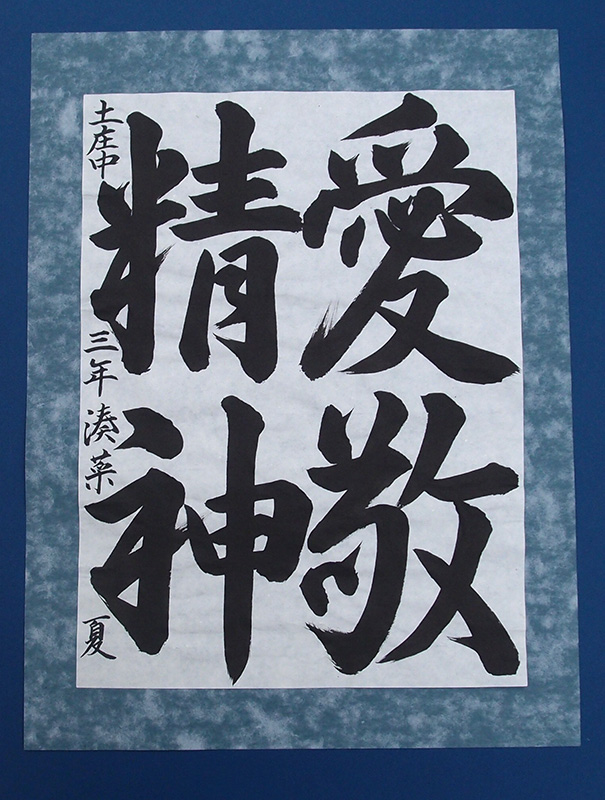 愛敬
精神
土庄中 三年 湊菜 夏